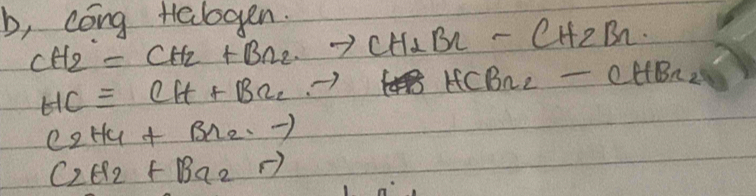 b, cộng Halogen.
CH2 = CH2 + Br2. → CH2Br - CH2Br.
HC ≡ CH + Br2. → HCBr2 - CHBr2
C2H4 + Br2. →
C2H2 + Br2 →